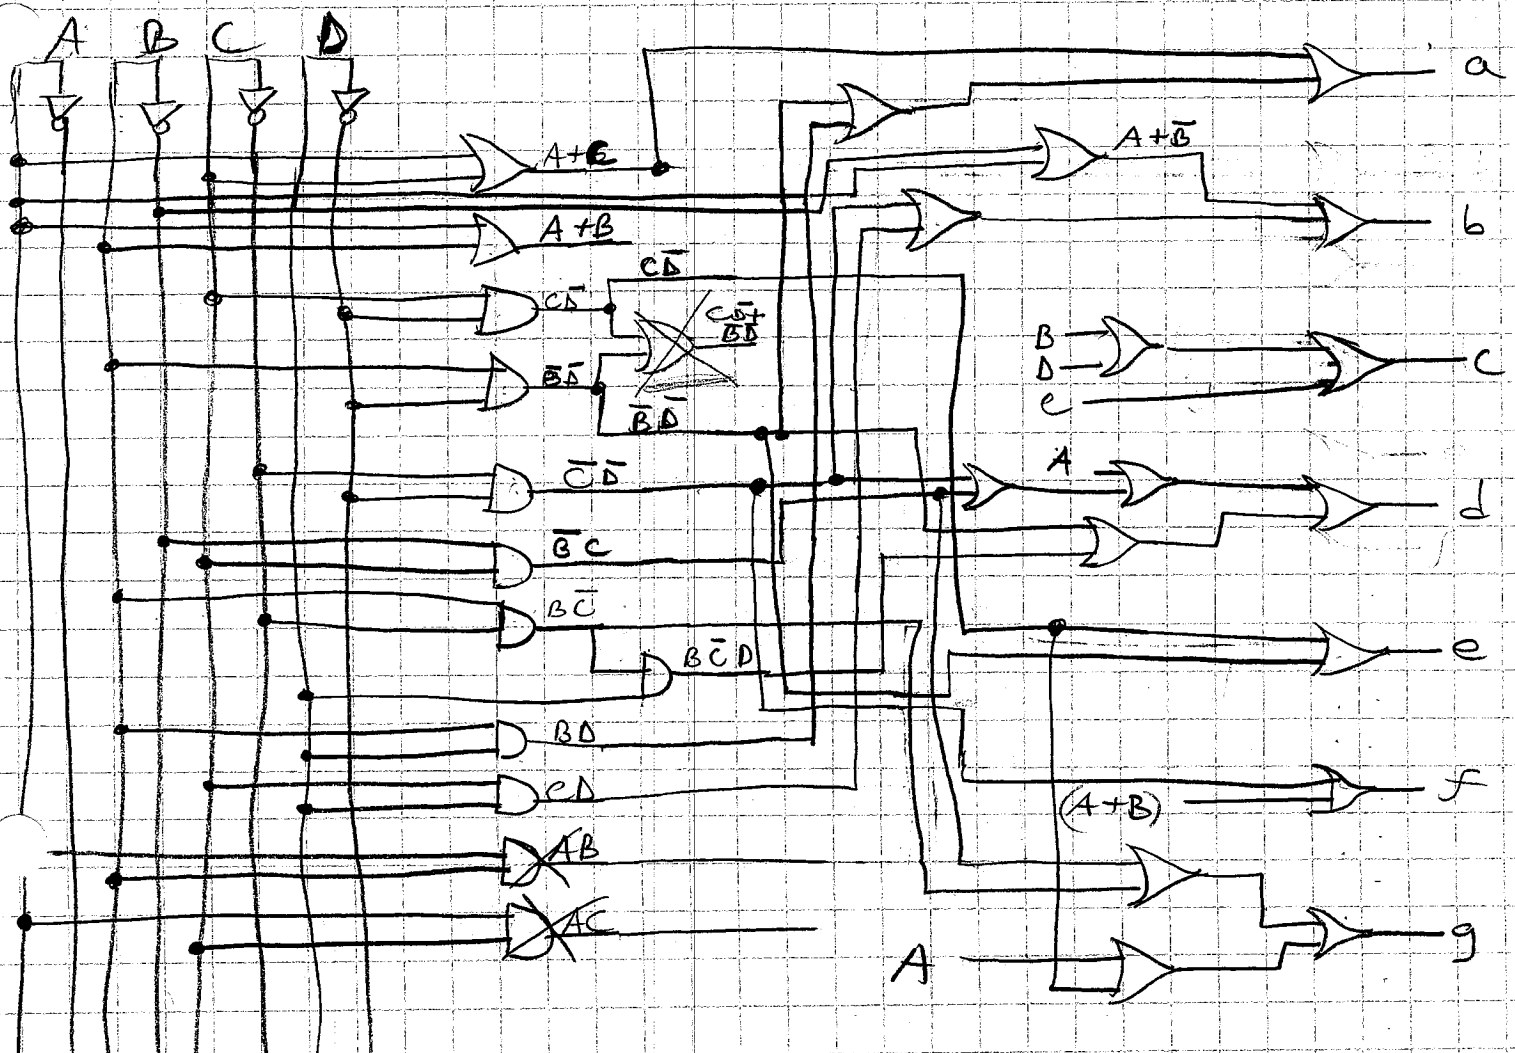 A B C D
a
A+C
A+B̅
A+B
b
CD̅
CD̅
CD̅+
BD̅
B̅D̅
B̅D̅
B
D
C
c
A
C̅D̅
d
B̅C
BC̅
BC̅D
e
BD
CD
f
(A+B)
AB
AC
A
g